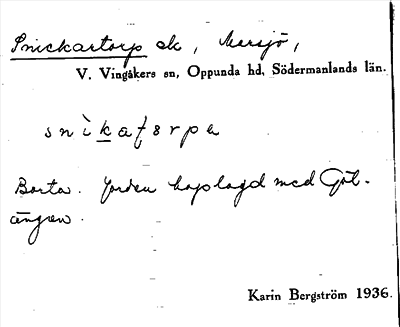 Snickartorp sk, Marsjö,
V. Vingåkers sn, Oppunda hd, Södermanlands län.
snìkatorpe
Borta. Jorden hoplagd med Göl-
ängen.
Karin Bergström 1936.